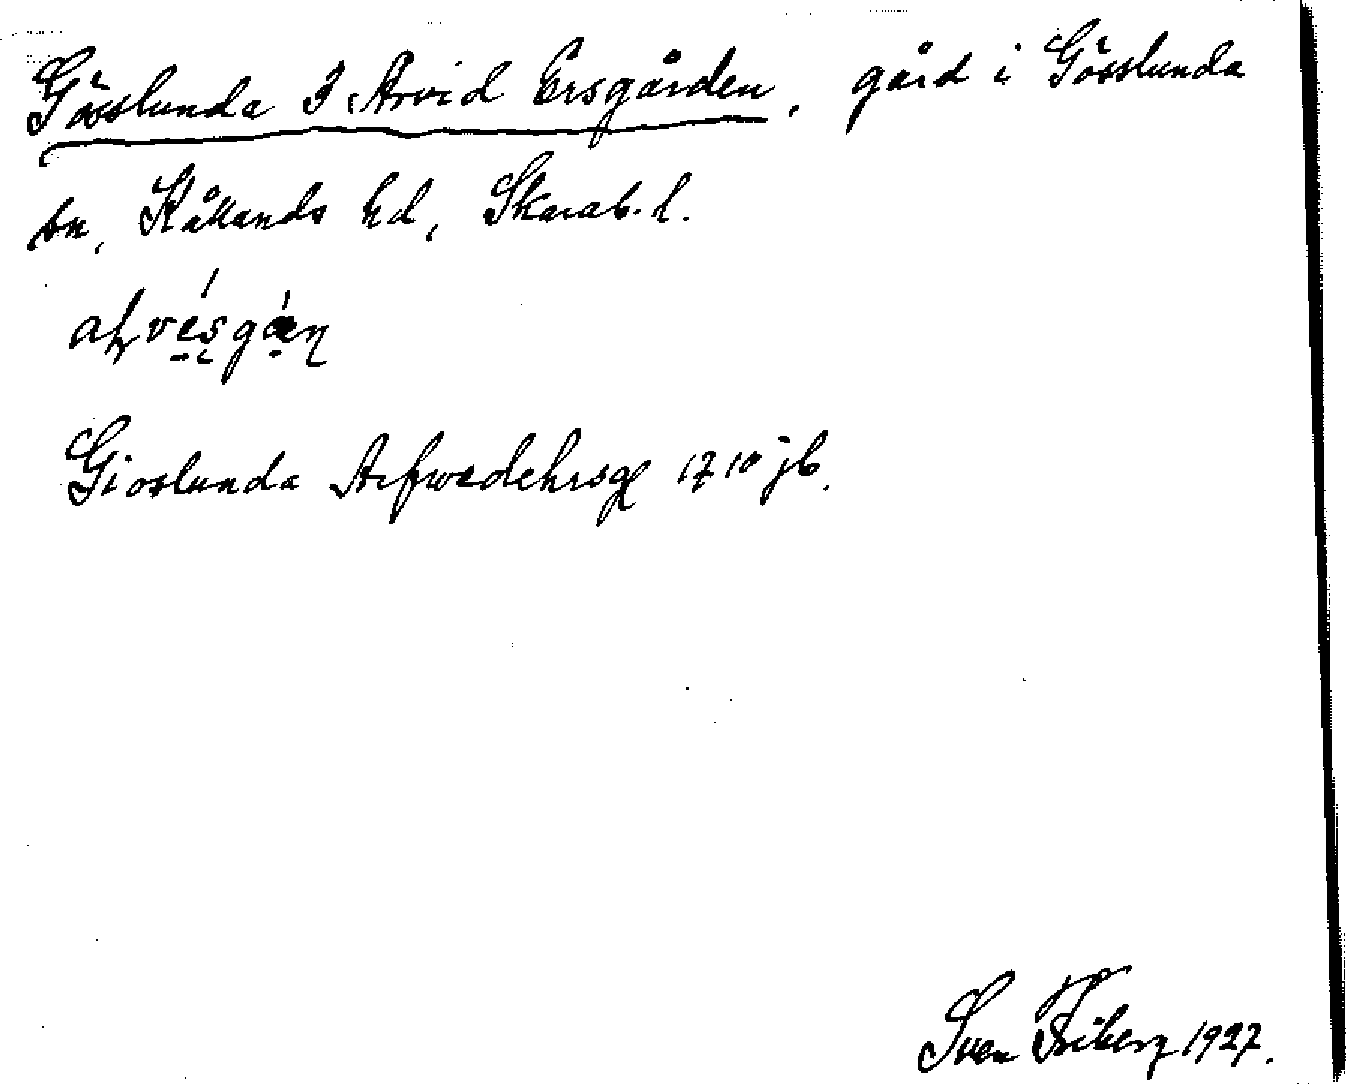 Gösslunda 3 Arvid Ersgården, gård i Gösslunda
sn, Kållands hd, Skarab. l.
Gioslunda Arfwedehrsg 1710 jb.
Sven Friberg 1927.